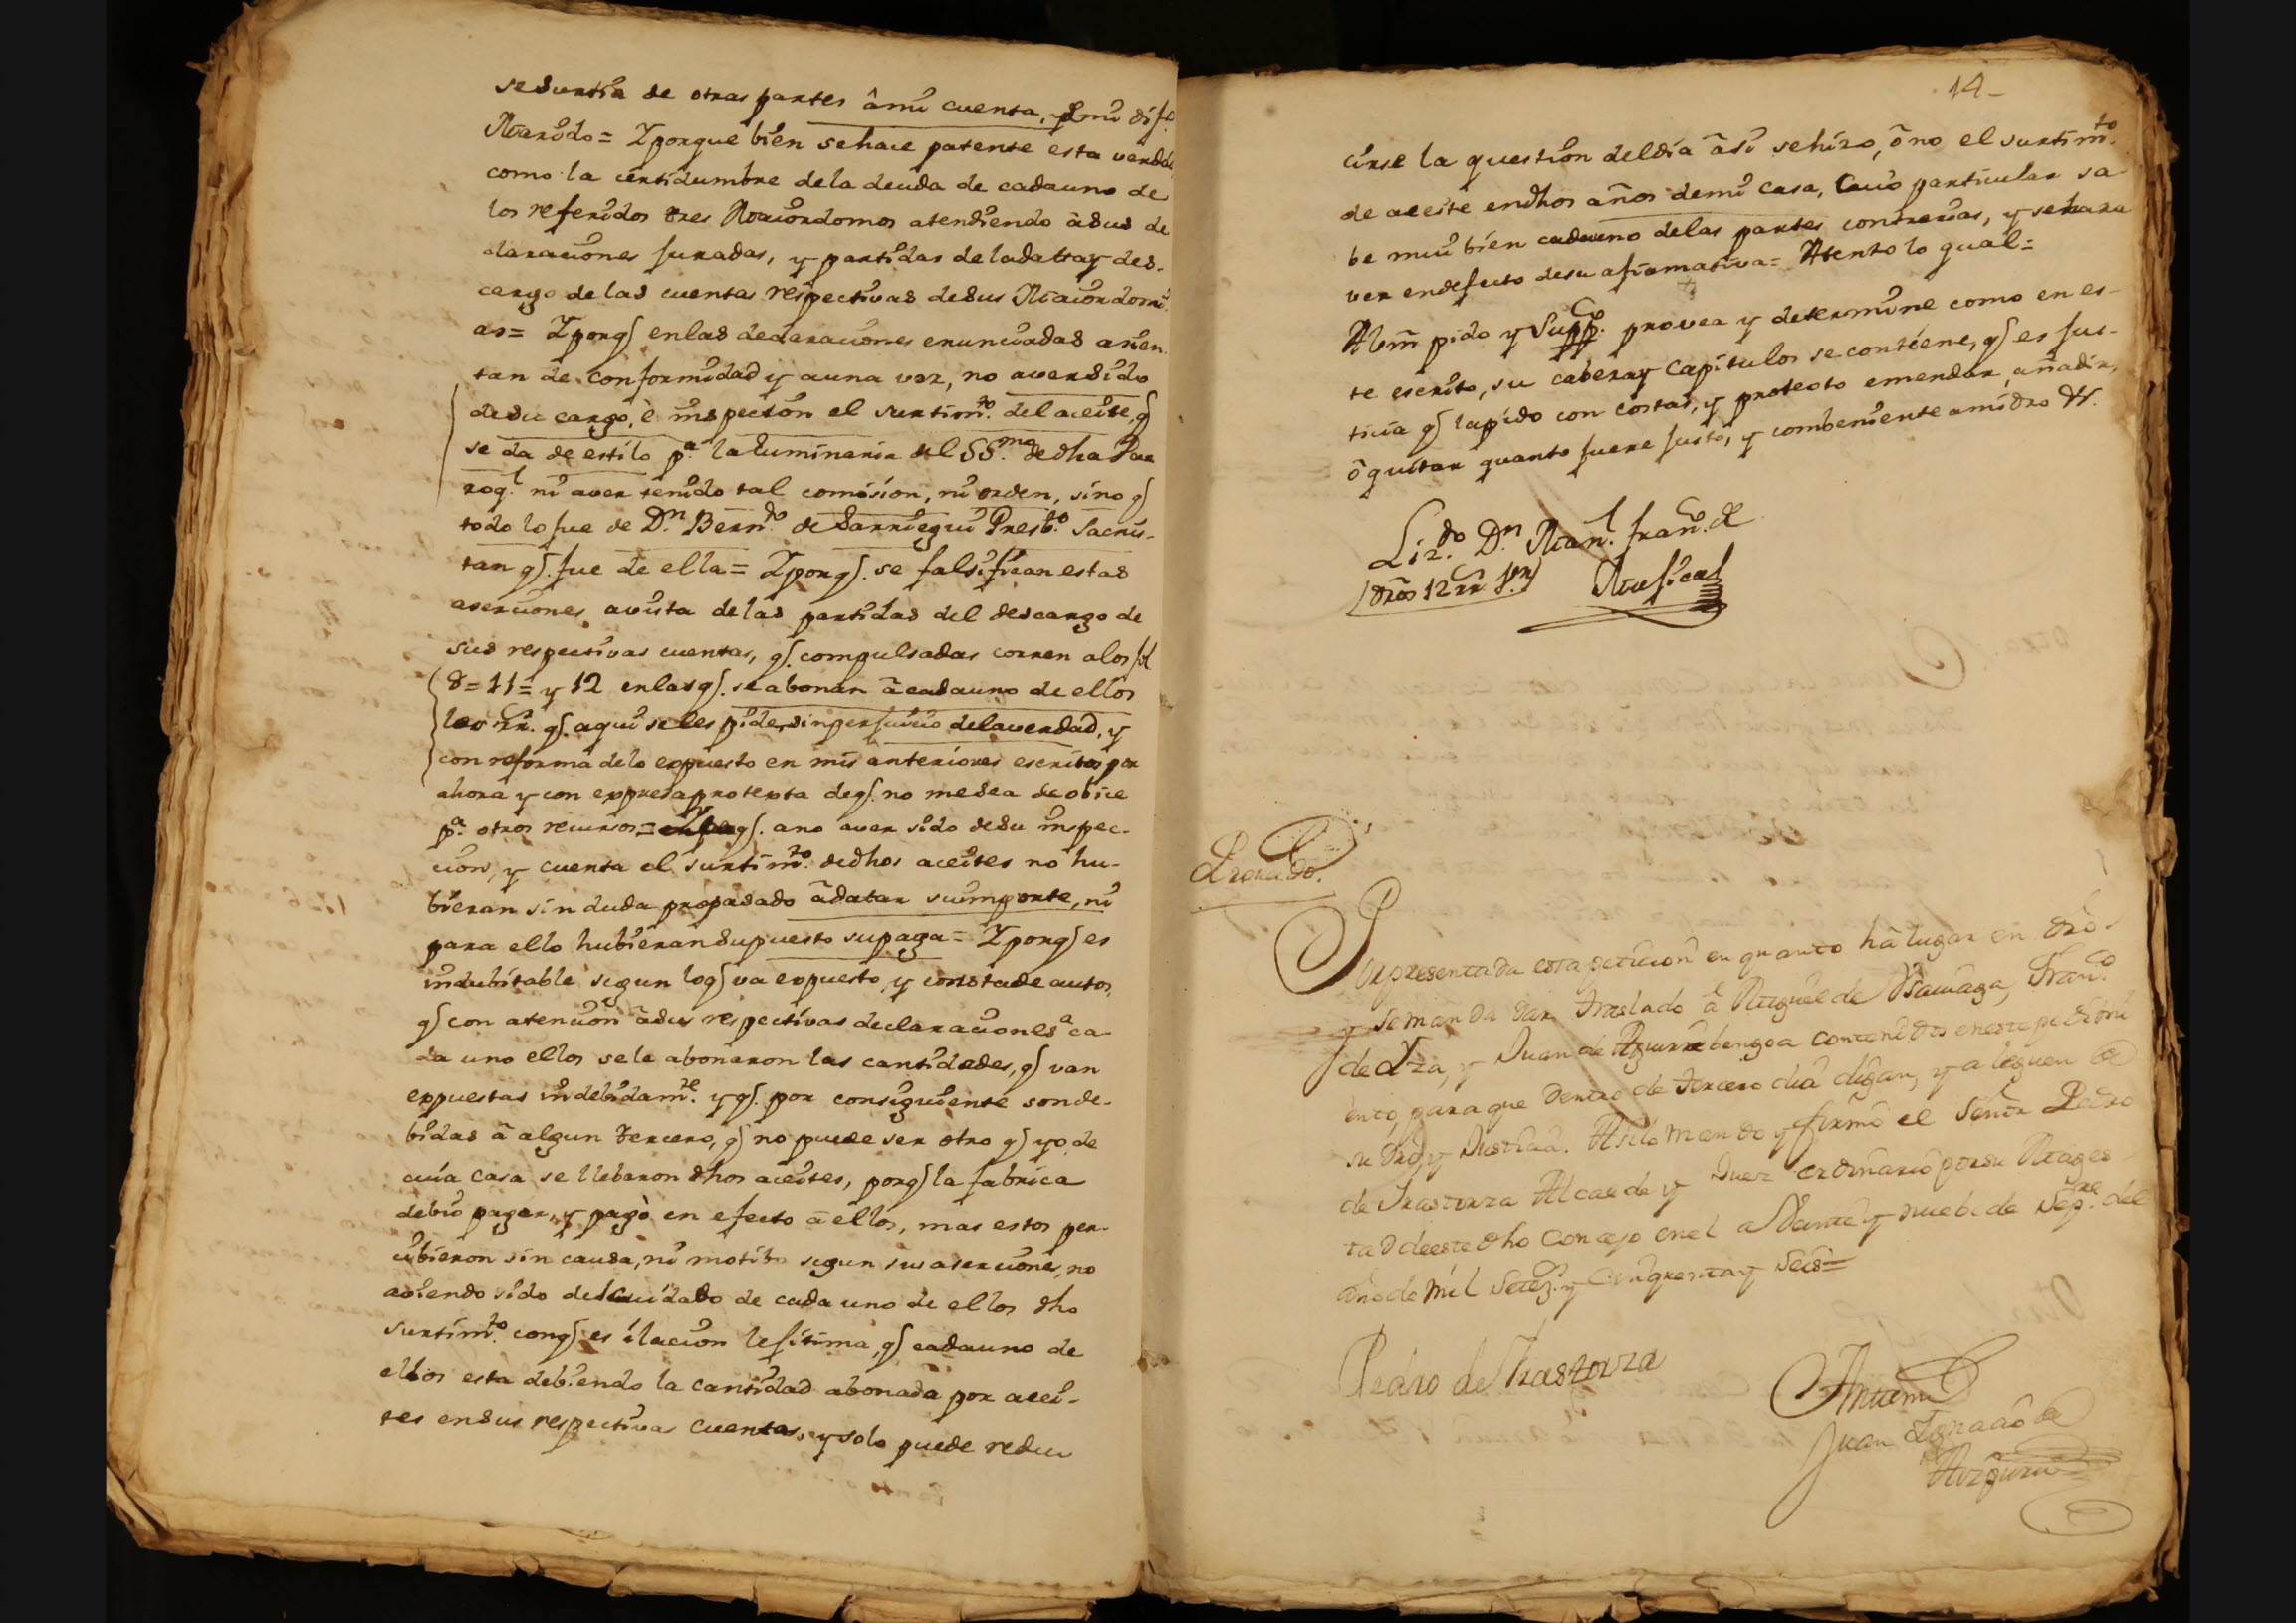 se surtia de otras partes â mi cuenta, y mi dif.to
Marido = Y porque bien se hace patente esta verdad,
como la certidumbre de la deuda de cada uno de
los referidos tres Maiordomos atendiendo à sus de
claraciones juradas, y partidas de la data y des-
cargo de las cuentas respectivas de sus Maiordomi
as = Y porq enlas declaraciones enunciadas asien
tan de conformidad y a una voz, no aver sido
de su cargo, è inspección el surtim.to del aceite, q
se da de estilo p.a la Luminaria del SS.mo de dha Par
roq.l ni aver tenido tal comision, ni orden, sino q
todo lo fue de D.n Bern.do de Larriegui Presb.o Sacris-
tan q. fue de ella = Y porq. se falsifican estas
aserciones avista de las partidas del descargo de
sus respectivas cuentas, q. compulsadas corren a los fol
8 = 11 = y 12 enlas q. se abonan â cada uno de ellos
los rr. q. aqui se les pide, sin perjuicio dela verdad, y
con reforma de lo expuesto en mis anteriores escritos por
ahora y con expresa protexta de q. no me sea de obice
p.a otros recursos = q. a no aver sido de su inspec-
cion, y cuenta el surtim.to de dhos aceites no hu-
bieran sin duda propasado â datar su importe, ni
para ello hubieran supuesto su paga = Y porq es
indubitable segun lo q va expuesto, y consta de autos,
q con atencion â sus respectivas declaraciones a ca-
da uno ellos se le abonaron las cantidades, q van
expuestas indebidam.te y q. por consiguiente son de-
bidas â algun tercero, q no puede ser otro q yo, de
cuia casa se llebaron dhos aceites, porq la fabrica
debio pagar, y pagò en efecto â ellos, mas estos per-
cibieron sin causa, ni motibo segun sus aserciones, no
aviendo sido del cuidado de cada uno de ellos dho
surtim.to con q es ilacion lejitima, q cada uno de
ellos esta debiendo la cantidad abonada por acei-
tes en sus respectivas cuentas, y solo puede redu
14-
cirse la question del dia â si se hizo, ô no el surtim.to
de aceite en dhos años de mi casa, cuio particular sa
be mui bien cada uno delas partes contrarias, y se hara
ver en defecto de su afirmativa = Atento lo qual =
A Vm pido y Supp.co provea y determine como en es-
te escrito, su cabeza y Capitulos se contiene, q es jus-
ticia q la pido con costas, y protexto emendar, añadir,
ô quitar quanto fuere justo, y combeniente a mi dro &.
Liz.do D.n Man.l Fran.co de
dros 12 rr
Proveido.
Por presentada esta peticion en quanto hà lugar en dro.
y se manda dar traslado â Miguel de Fran.co
de Yza, y Juan de Aguirrebengoa contenidos en este pedim
ento, para que dentro de tercero dia digan, y aleguen de
su dro, y Justicia. Asi lo mando y firmô el Señor Pedro
de Irastorza Alcalde y Juez ordinario por su Mages-
tad de este dho Concejo en el a Veinte y nuebe de Sep.re del
año de mil Setez.s y Cinquenta y Seis =
Pedro de Irastorza
Antemi
Juan Ignacio de